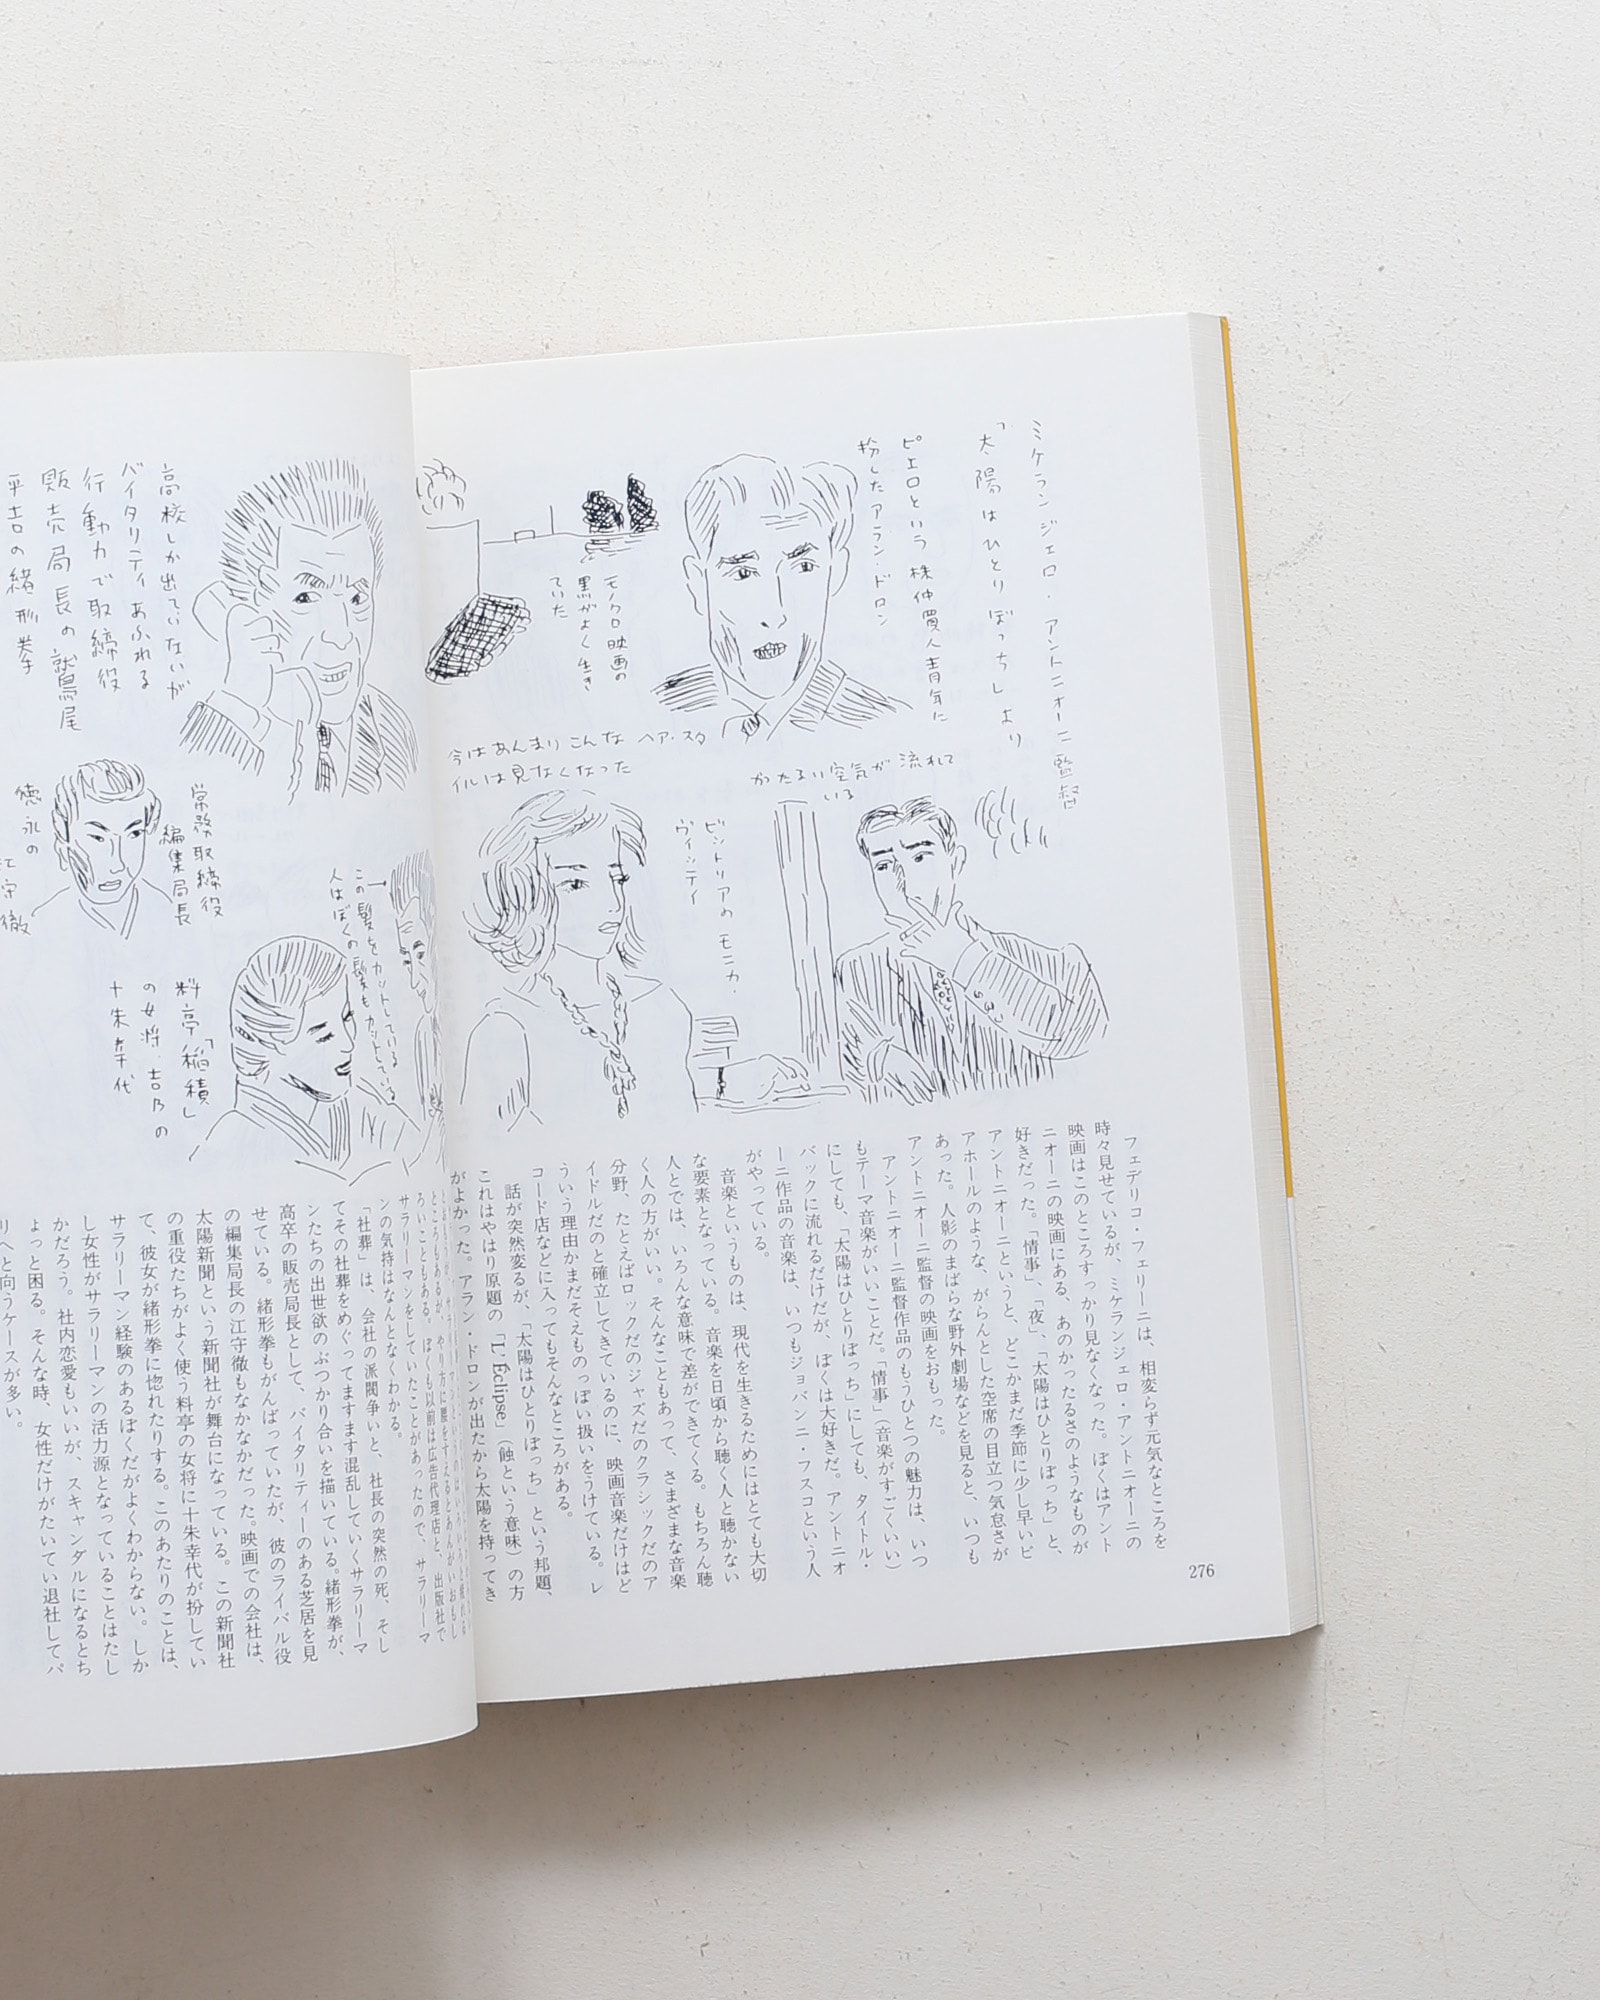 ミケランジェロ・アントニオーニ監督
「太陽はひとりぼっち」より
ピエロという株仲買人青年に
扮したアラン・ドロン
モノクロ映画の
黒がよく生き
ていた
かたるい空気が流れて
いる
今はあんまりこんなヘア・スタ
イルは見なくなった
ビットリアのモニカ・
ヴィッティ
フェデリコ・フェリーニは、相変らず元気なところを
時々見せているが、ミケランジェロ・アントニオーニの
映画はこのところすっかり見なくなった。ぼくはアント
ニオーニの映画にある、あのかったるさのようなものが
好きだった。「情事」、「夜」、「太陽はひとりぼっち」と、
アントニオーニというと、どこかまだ季節に少し早いビ
アホールのような、がらんとした空席の目立つ気怠さが
あった。人影のまばらな野外劇場などを見ると、いつも
アントニオーニ監督の映画をおもった。
アントニオーニ監督作品のもうひとつの魅力は、いつ
もテーマ音楽がいいことだ。「情事」（音楽がすごくいい）
にしても、「太陽はひとりぼっち」にしても、タイトル・
バックに流れるだけだが、ぼくは大好きだ。アントニオ
ーニ作品の音楽は、いつもジョバンニ・フスコという人
がやっている。
音楽というものは、現代を生きるためにはとても大切
な要素となっている。音楽を日頃から聴く人と聴かない
人とでは、いろんな意味で差ができてくる。もちろん聴
く人の方がいい。そんなこともあって、さまざまな音楽
分野、たとえばロックだのジャズだのクラシックだのア
イドルだのと確立してきているのに、映画音楽だけはど
ういう理由かまだそえものっぽい扱いをうけている。レ
コード店などに入ってもそんなところがある。
話が突然変るが、「太陽はひとりぼっち」という邦題、
これはやはり原題の「L'Éclipse」（蝕という意味）の方
がよかった。アラン・ドロンが出たから太陽を持ってき
276
高校しか出ていないが
バイタリティあふれる
行動力で取締役
販売局長の鷲尾
平吉の緒形拳
常務取締役
編集局長
徳永の
江守徹
この髪をカットしている
人はぼくの髪もカットしている
料亭「稲積」
の女将・吉乃の
十朱幸代
ろいこともある。ぼくも以前は広告代理店と、出版社で
サラリーマンをしていたことがあったので、サラリーマ
ンの気持はなんとなくわかる。
「社葬」は、会社の派閥争いと、社長の突然の死、そし
てその社葬をめぐってますます混乱していくサラリーマ
ンたちの出世欲のぶつかり合いを描いている。緒形拳が、
高卒の販売局長として、バイタリティーのある芝居を見
せている。緒形拳もがんばっていたが、彼のライバル役
の編集局長の江守徹もなかなかだった。映画での会社は、
太陽新聞という新聞社が舞台になっている。この新聞社
の重役たちがよく使う料亭の女将に十朱幸代が扮してい
て、彼女が緒形拳に惚れたりする。このあたりのことは、
サラリーマン経験のあるぼくだがよくわからない。しか
し女性がサラリーマンの活力源となっていることはたし
かだろう。社内恋愛もいいが、スキャンダルになるとち
ょっと困る。そんな時、女性だけがたいてい退社してパ
りへと向うケースが多い。